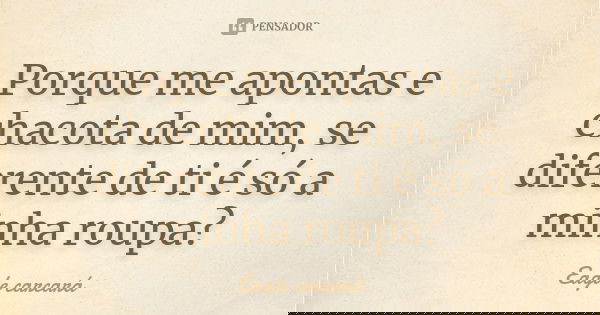 PENSADOR
Porque me apontas e
chacota de mim, se
diferente de ti é só a
minha roupa?
Eagle carcará